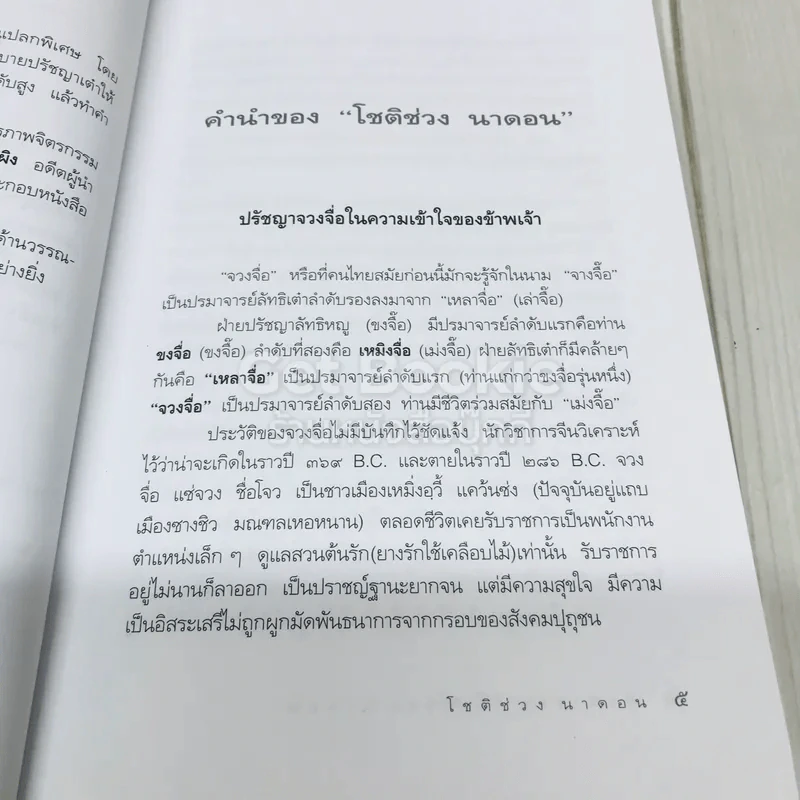 แปลกพิเศษ โดย
บายปรัชญาเต๋าให้
ดับสูง แล้วทำคำ
รภาพจิตรกรรม
ผิง อดีตผู้นำ
ะกอบหนังสือ
ด้านวรรณ-
อย่างยิ่ง
คำนำของ “โชติช่วง นาดอน”
ปรัชญาจวงจื่อในความเข้าใจของข้าพเจ้า
“จวงจื่อ” หรือที่คนไทยสมัยก่อนนี้มักจะรู้จักในนาม “จางจื๊อ”
เป็นปรมาจารย์ลัทธิเต๋าลำดับรองลงมาจาก “เหลาจื่อ” (เล่าจื๊อ)
ฝ่ายปรัชญาลัทธิหญู (ขงจื๊อ) มีปรมาจารย์ลำดับแรกคือท่าน
ขงจื่อ (ขงจื๊อ) ลำดับที่สองคือ เหมิงจื่อ (เม่งจื๊อ) ฝ่ายลัทธิเต๋าก็มีคล้ายๆ
กันคือ “เหลาจื่อ” เป็นปรมาจารย์ลำดับแรก (ท่านแก่กว่าขงจื่อรุ่นหนึ่ง)
“จวงจื่อ” เป็นปรมาจารย์ลำดับสอง ท่านมีชีวิตร่วมสมัยกับ “เม่งจื๊อ”
ประวัติของจวงจื่อไม่มีบันทึกไว้ชัดแจ้ง นักวิชาการจีนวิเคราะห์
ไว้ว่าน่าจะเกิดในราวปี ๓๖๙ B.C. และตายในราวปี ๒๘๖ B.C. จวง
จื่อ แซ่จวง ชื่อโจว เป็นชาวเมืองเหมิ่งอฺวี้ แคว้นซ่ง (ปัจจุบันอยู่แถบ
เมืองซางชิว มณฑลเหอหนาน) ตลอดชีวิตเคยรับราชการเป็นพนักงาน
ตำแหน่งเล็กๆ ดูแลสวนต้นรัก(ยางรักใช้เคลือบไม้)เท่านั้น รับราชการ
อยู่ไม่นานก็ลาออก เป็นปราชญ์ฐานะยากจน แต่มีความสุขใจ มีความ
เป็นอิสระเสรีไม่ถูกผูกมัดพันธนาการจากกรอบของสังคมปุถุชน
Get Bookie
ร้านหนังสือปุ๊กกี้
โชติช่วง นาดอน ๕